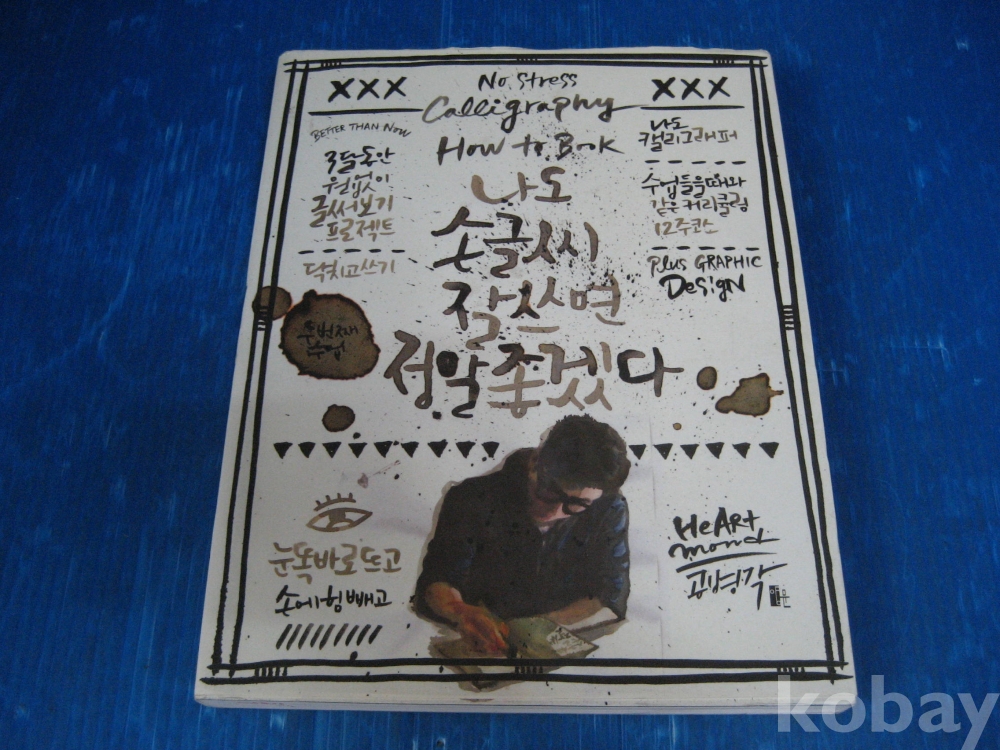 XXX
No Stress
Calligraphy
How to Book
XXX
BETTER THAN NOW
3달동안
원없이
글써보기
프로젝트
닥치고쓰기
나도
캘리그래퍼
수업들을때와
같은커리큘럼
12주코스
Plus GRAPHIC
DesigN
나도
손글씨
잘쓰면
정말좋겠다
두번째
수업
눈똑바로뜨고
손에힘빼고
HeARt
mond
공병각
kobay